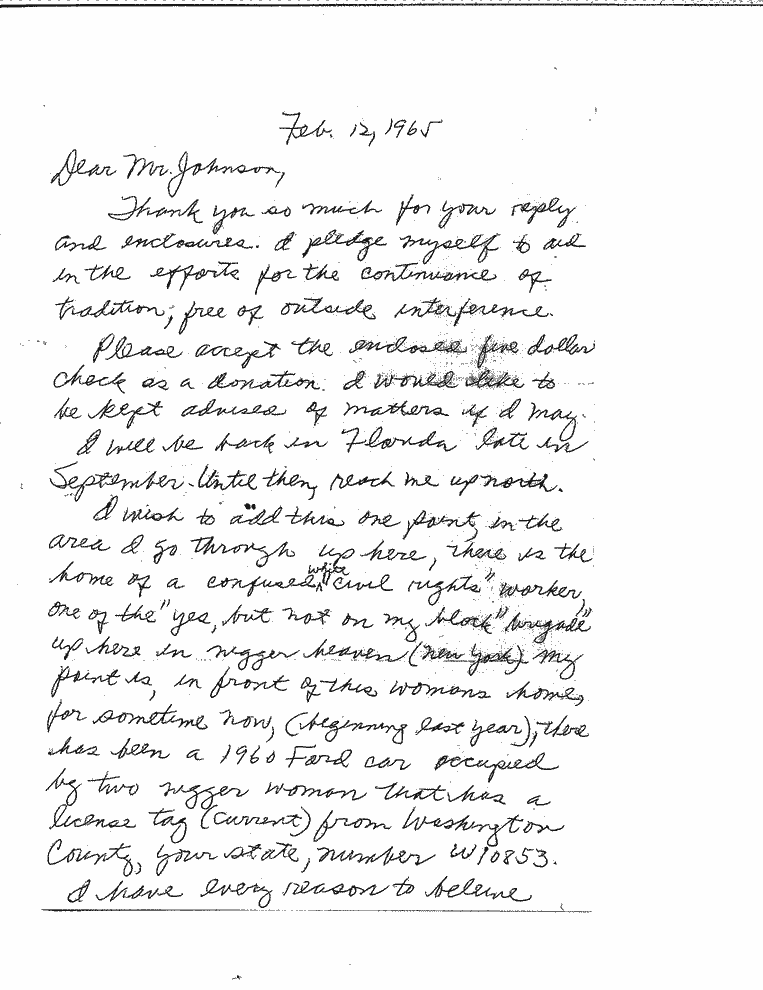 Feb. 12, 1965
Dear Mr. Johnson,
Thank you so much for your reply
and enclosures. I pledge myself to aid
in the efforts for the continuance of
tradition; free of outside interference.
Please accept the enclosed five dollar
check as a donation. I would like to
be kept advised of matters if I may.
I will be back in Florida late in
September. Until then, reach me up north.
I wish to add this one point, in the
area I go through up here, there is the
home of a confused white "civil rights" worker,
one of the "yes, but not on my block" brigade"
up here in nigger heaven (New York). My
point is, in front of this womans home,
for sometime now, (beginning last year), there
has been a 1960 Ford car occupied
by two nigger woman that has a
license tag (current) from Washington
County, your state, number W10853.
I have every reason to beleive